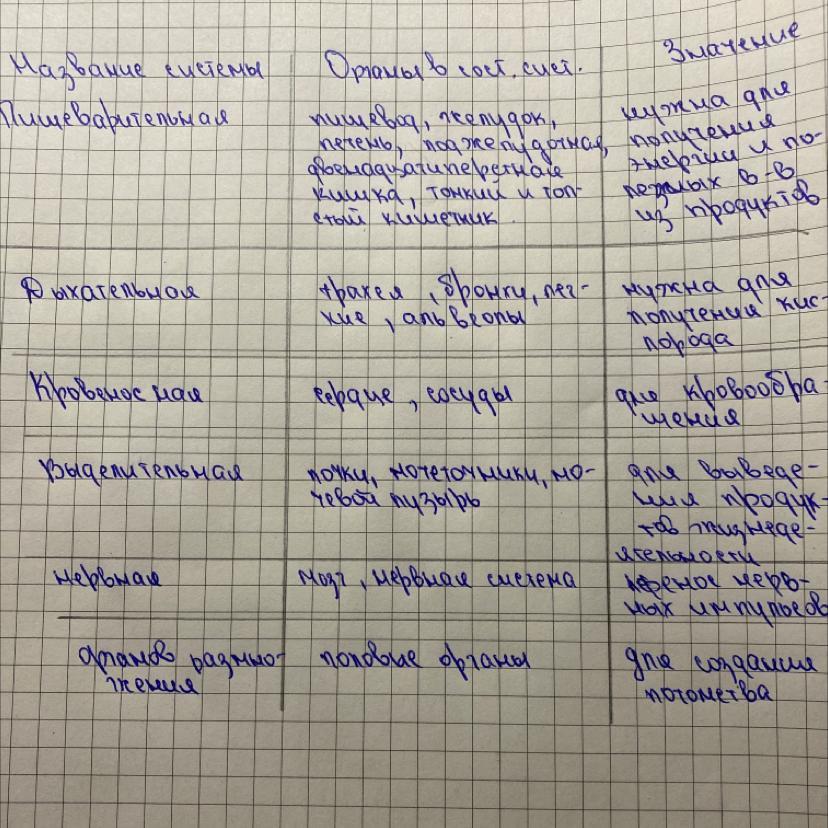 Название системы
Органы в сост. сист.
Значение
Пищеварительная
пищевод, желудок,
печень, поджелудочная,
двенадцатиперстная
кишка, тонкий и тол-
стый кишечник.
нужна для
получения
энергии и по-
лезных в-в
из продуктов
Дыхательная
трахея, бронхи, лег-
кие, альвеолы
нужна для
получения кис-
лорода
Кровеносная
сердце, сосуды
для кровообра-
щения
Выделительная
почки, мочеточники, мо-
чевой пузырь
для выведе-
ния продук-
тов жизнеде-
ятельности
нервная
мозг, нервная система
перенос нерв-
ных импульсов
органов размно-
жения
половые органы
для создания
потомства